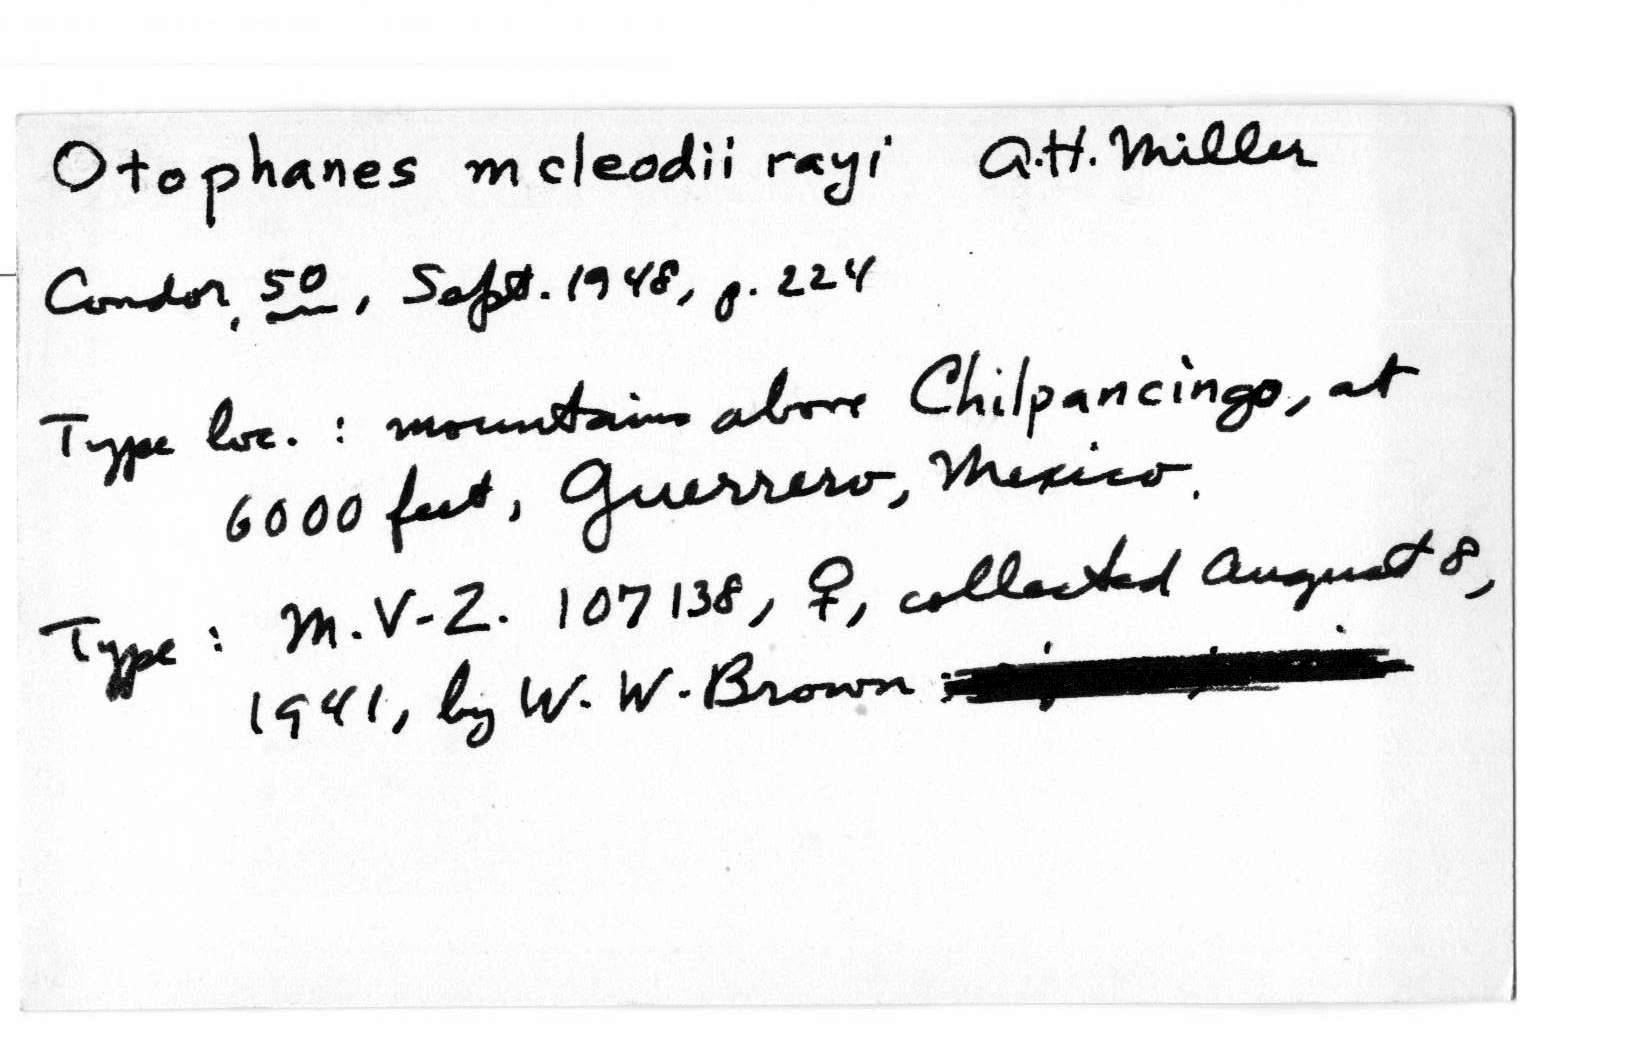 Otophanes mcleodii rayi A.H. Miller
Condor, 50, Sept. 1948, p. 224
Type loc. : mountains above Chilpancingo, at
6000 feet, Guerrero, Mexico.
Type : M.V.Z. 107138, ♀, collected August 8,
1941, by W. W. Brown